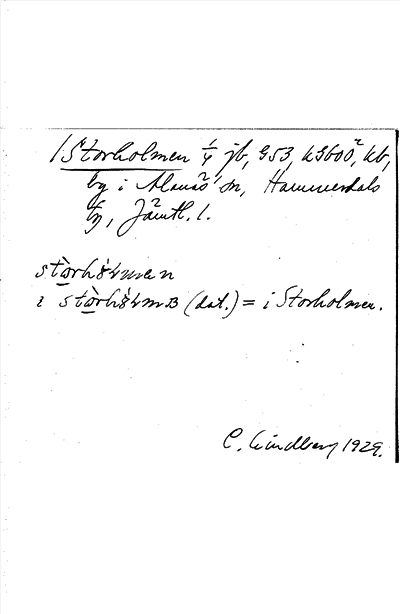 /Storholmen ¼ jb, G53, kGb00², kb,
by i Alanäs sn, Hammerdals
tg, Jämtl. l.
stòrhó̀ɫmen
i stòrhó̀ɫmʙ (dat.) = i Storholmen.
C. Lindberg 1929.